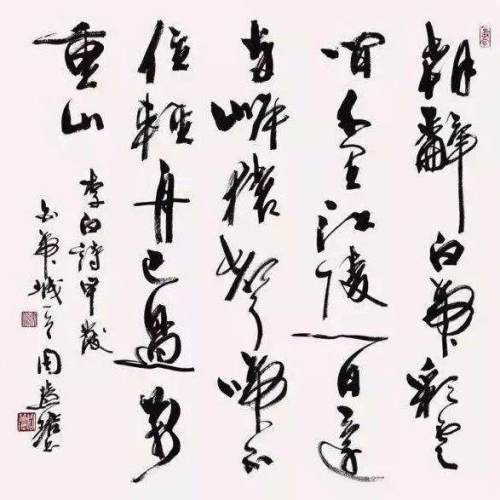 朝辭白帝彩雲
間千里江陵一日還
兩岸猿聲啼不
住輕舟已過萬
重山
李白詩早發
白帝城一首 周慧珺